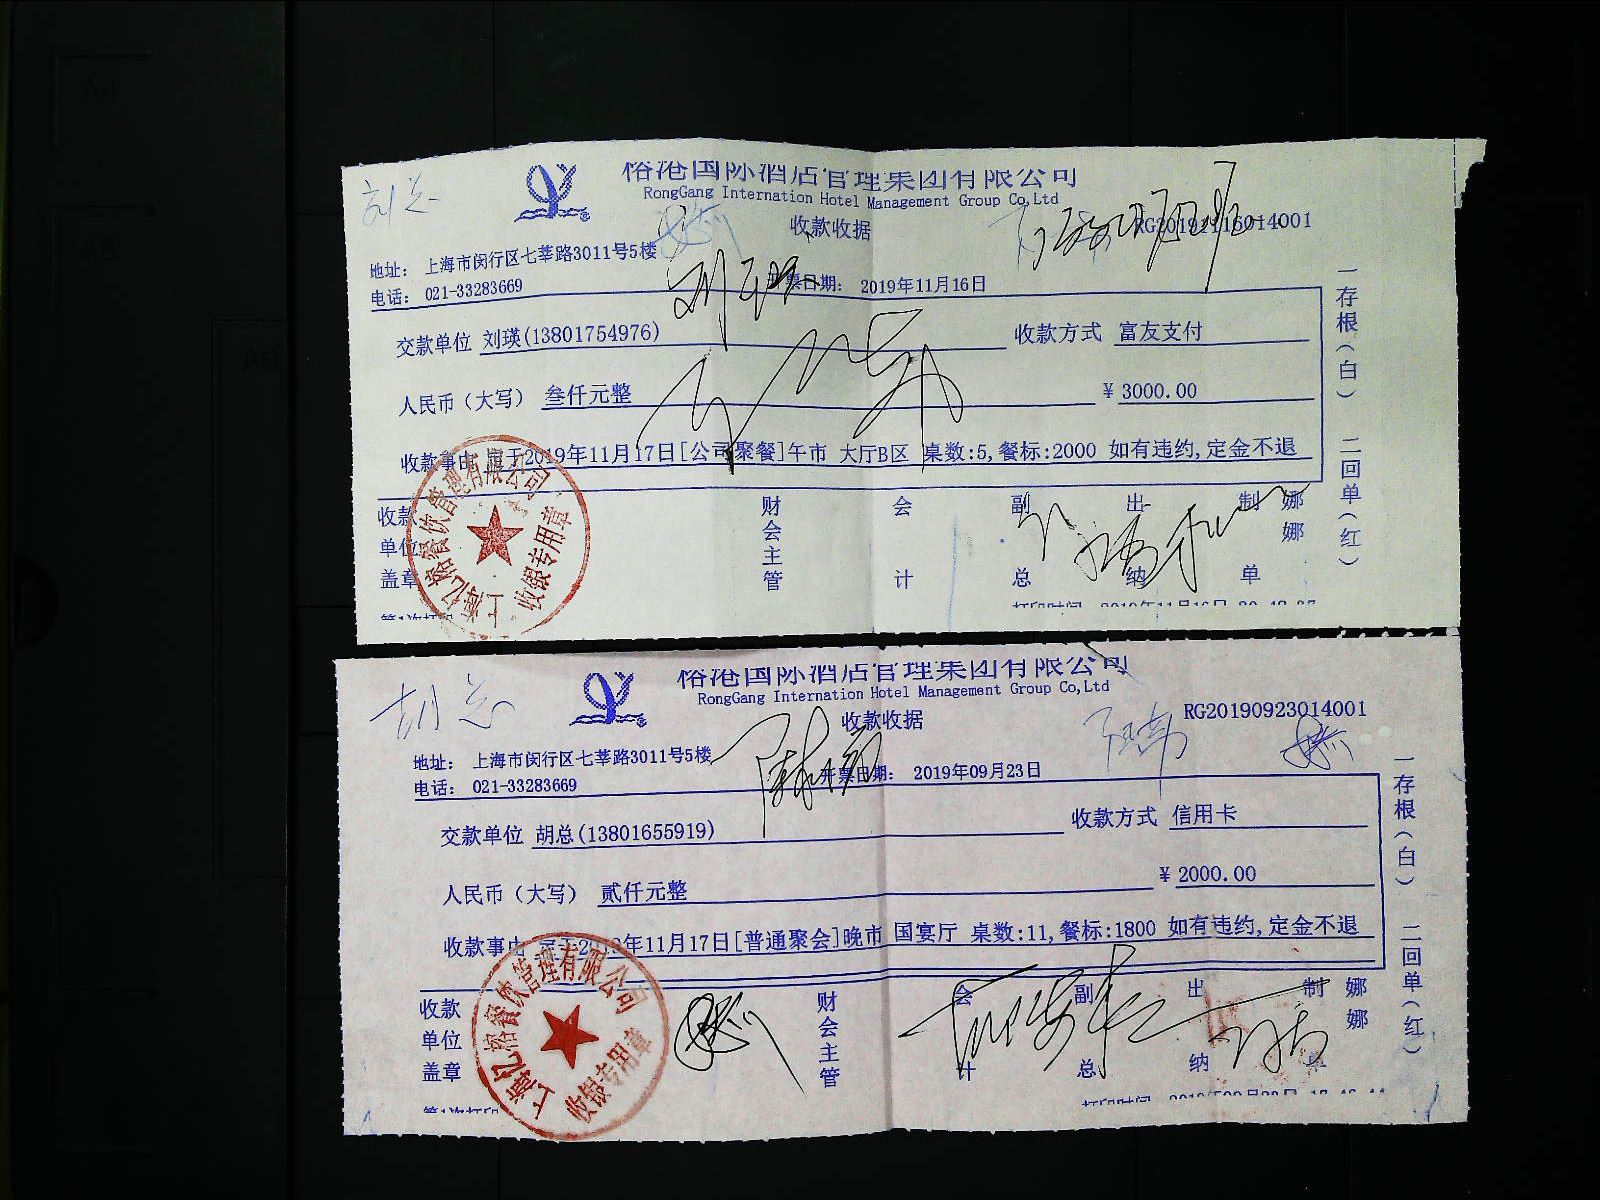 榕港国际酒店管理集团有限公司
RongGang Internation Hotel Management Group Co,Ltd
刘总
收款收据
RG20191116014001
地址： 上海市闵行区七莘路3011号5楼
电话： 021-33283669
开票日期： 2019年11月16日
交款单位 刘瑛(13801754976)
收款方式 富友支付
人民币（大写） 叁仟元整
￥ 3000.00
收款事由 定于2019年11月17日[公司聚餐]午市 大厅B区 桌数:5,餐标:2000 如有违约,定金不退
收款单位盖章
财会主管
会计
副总
出纳
制单
娜娜
一存根（白） 二回单（红）
上海亿榕餐饮管理有限公司
收银专用章
第1次打印
打印时间 2019年11月16日
榕港国际酒店管理集团有限公司
RongGang Internation Hotel Management Group Co,Ltd
胡总
收款收据
RG20190923014001
地址： 上海市闵行区七莘路3011号5楼
电话： 021-33283669
开票日期： 2019年09月23日
交款单位 胡总(13801655919)
收款方式 信用卡
人民币（大写） 贰仟元整
￥ 2000.00
收款事由 定于2019年11月17日[普通聚会]晚市 国宴厅 桌数:11,餐标:1800 如有违约,定金不退
收款单位盖章
财会主管
会计
副总
出纳
制单
娜娜
一存根（白） 二回单（红）
上海亿榕餐饮管理有限公司
收银专用章
第1次打印
打印时间